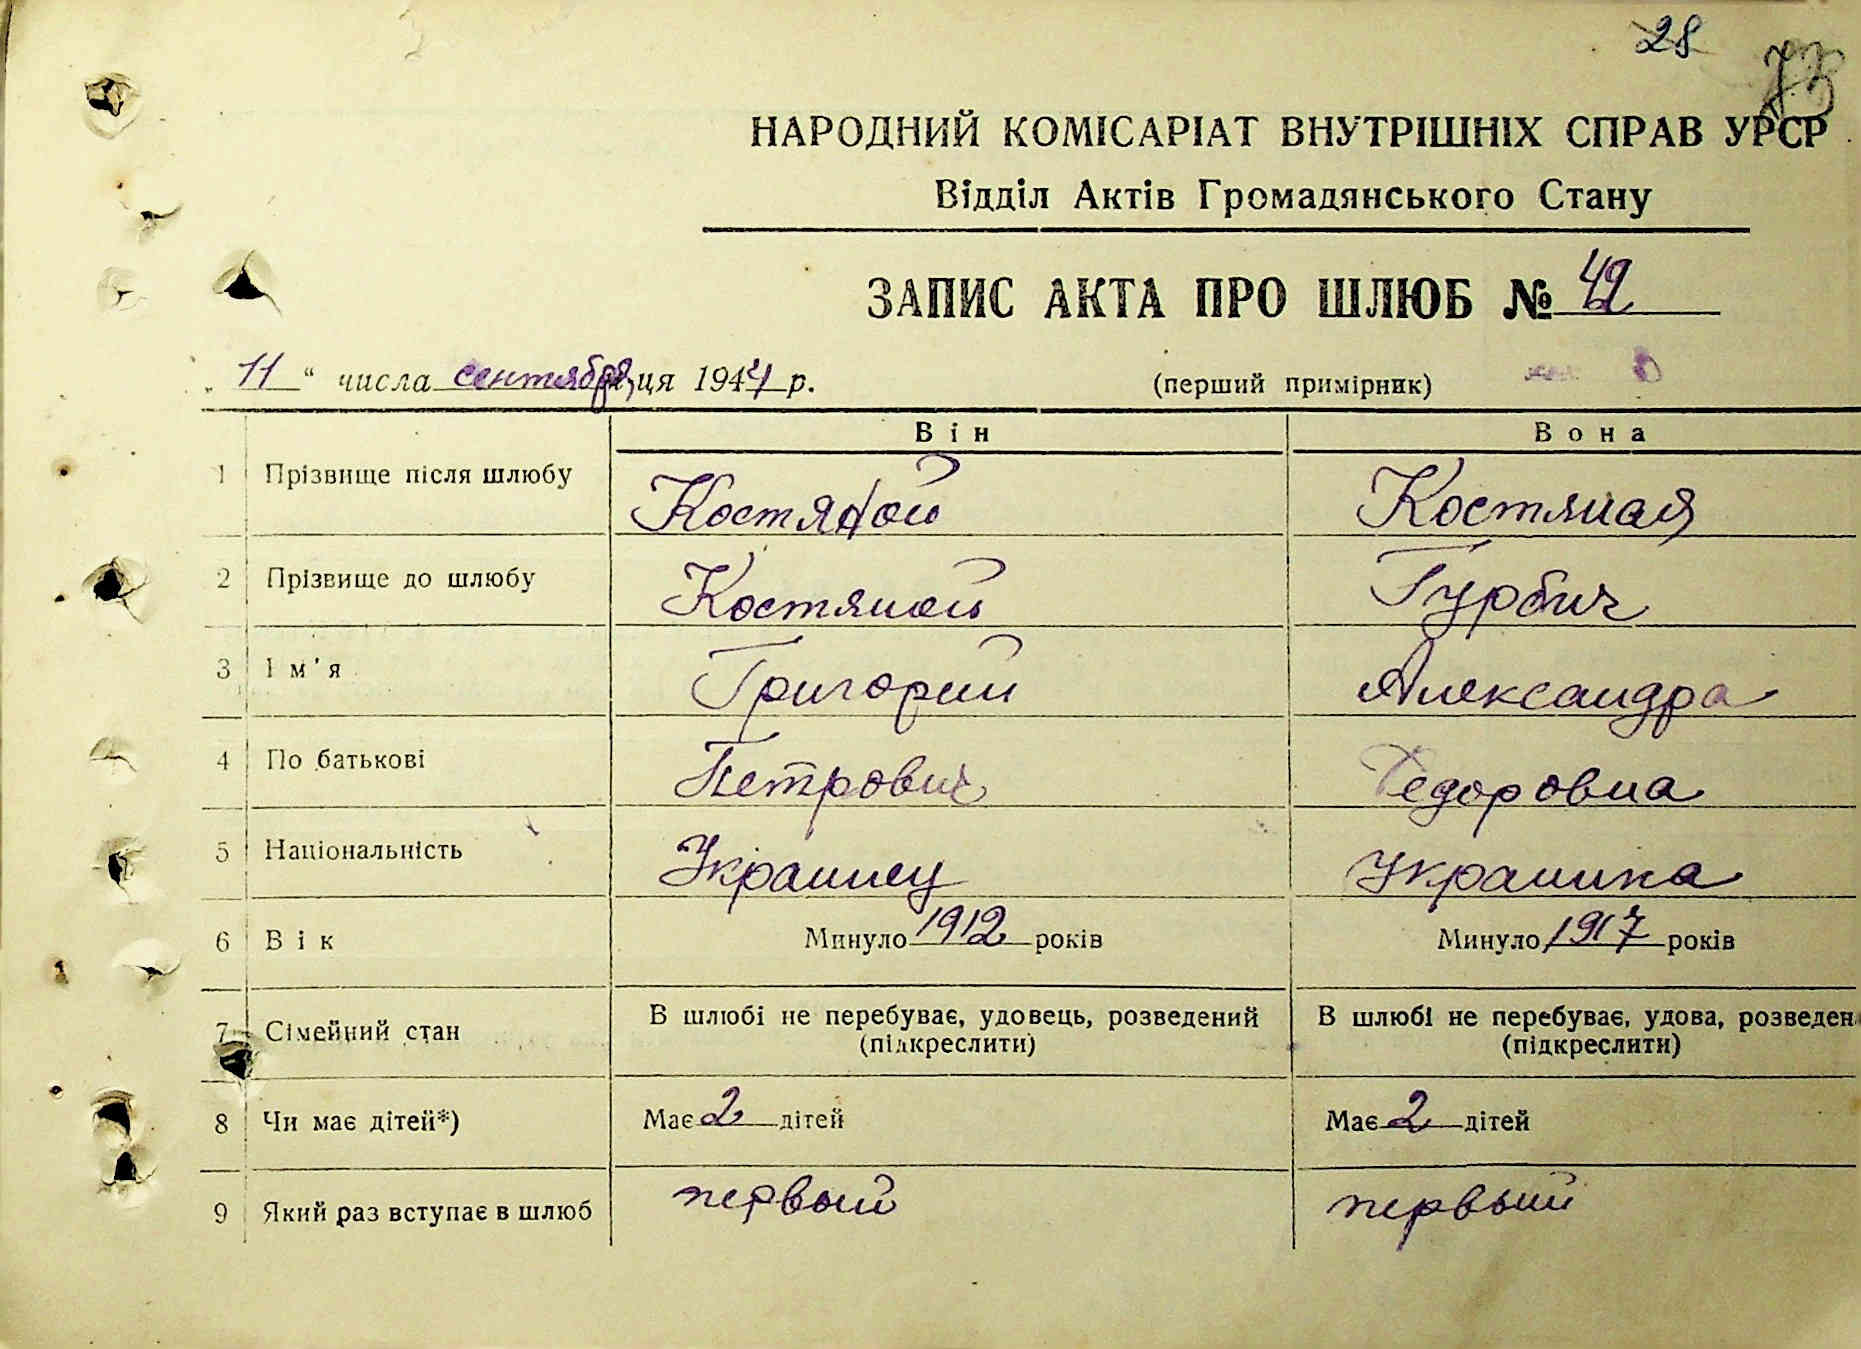 28
73
НАРОДНИЙ КОМІСАРІАТ ВНУТРІШНІХ СПРАВ УРСР
Відділ Актів Громадянського Стану
ЗАПИС АКТА ПРО ШЛЮБ № 42
„ 11 “ числа сентября ця 1944 р. (перший примірник)
Він Вона
1 Прізвище після шлюбу Костяной Костяная
2 Прізвище до шлюбу Костяной Гурбич
3 Ім'я Григорий Александра
4 По батькові Петрович Федоровна
5 Національність Украинец Украинка
6 Вік Минуло 1912 років Минуло 1917 років
7 Сімейний стан В шлюбі не перебуває, удовець, розведений В шлюбі не перебуває, удова, розведен
(підкреслити) (підкреслити)
8 Чи має дітей*) Має 2 дітей Має 2 дітей
9 Який раз вступає в шлюб первый первый